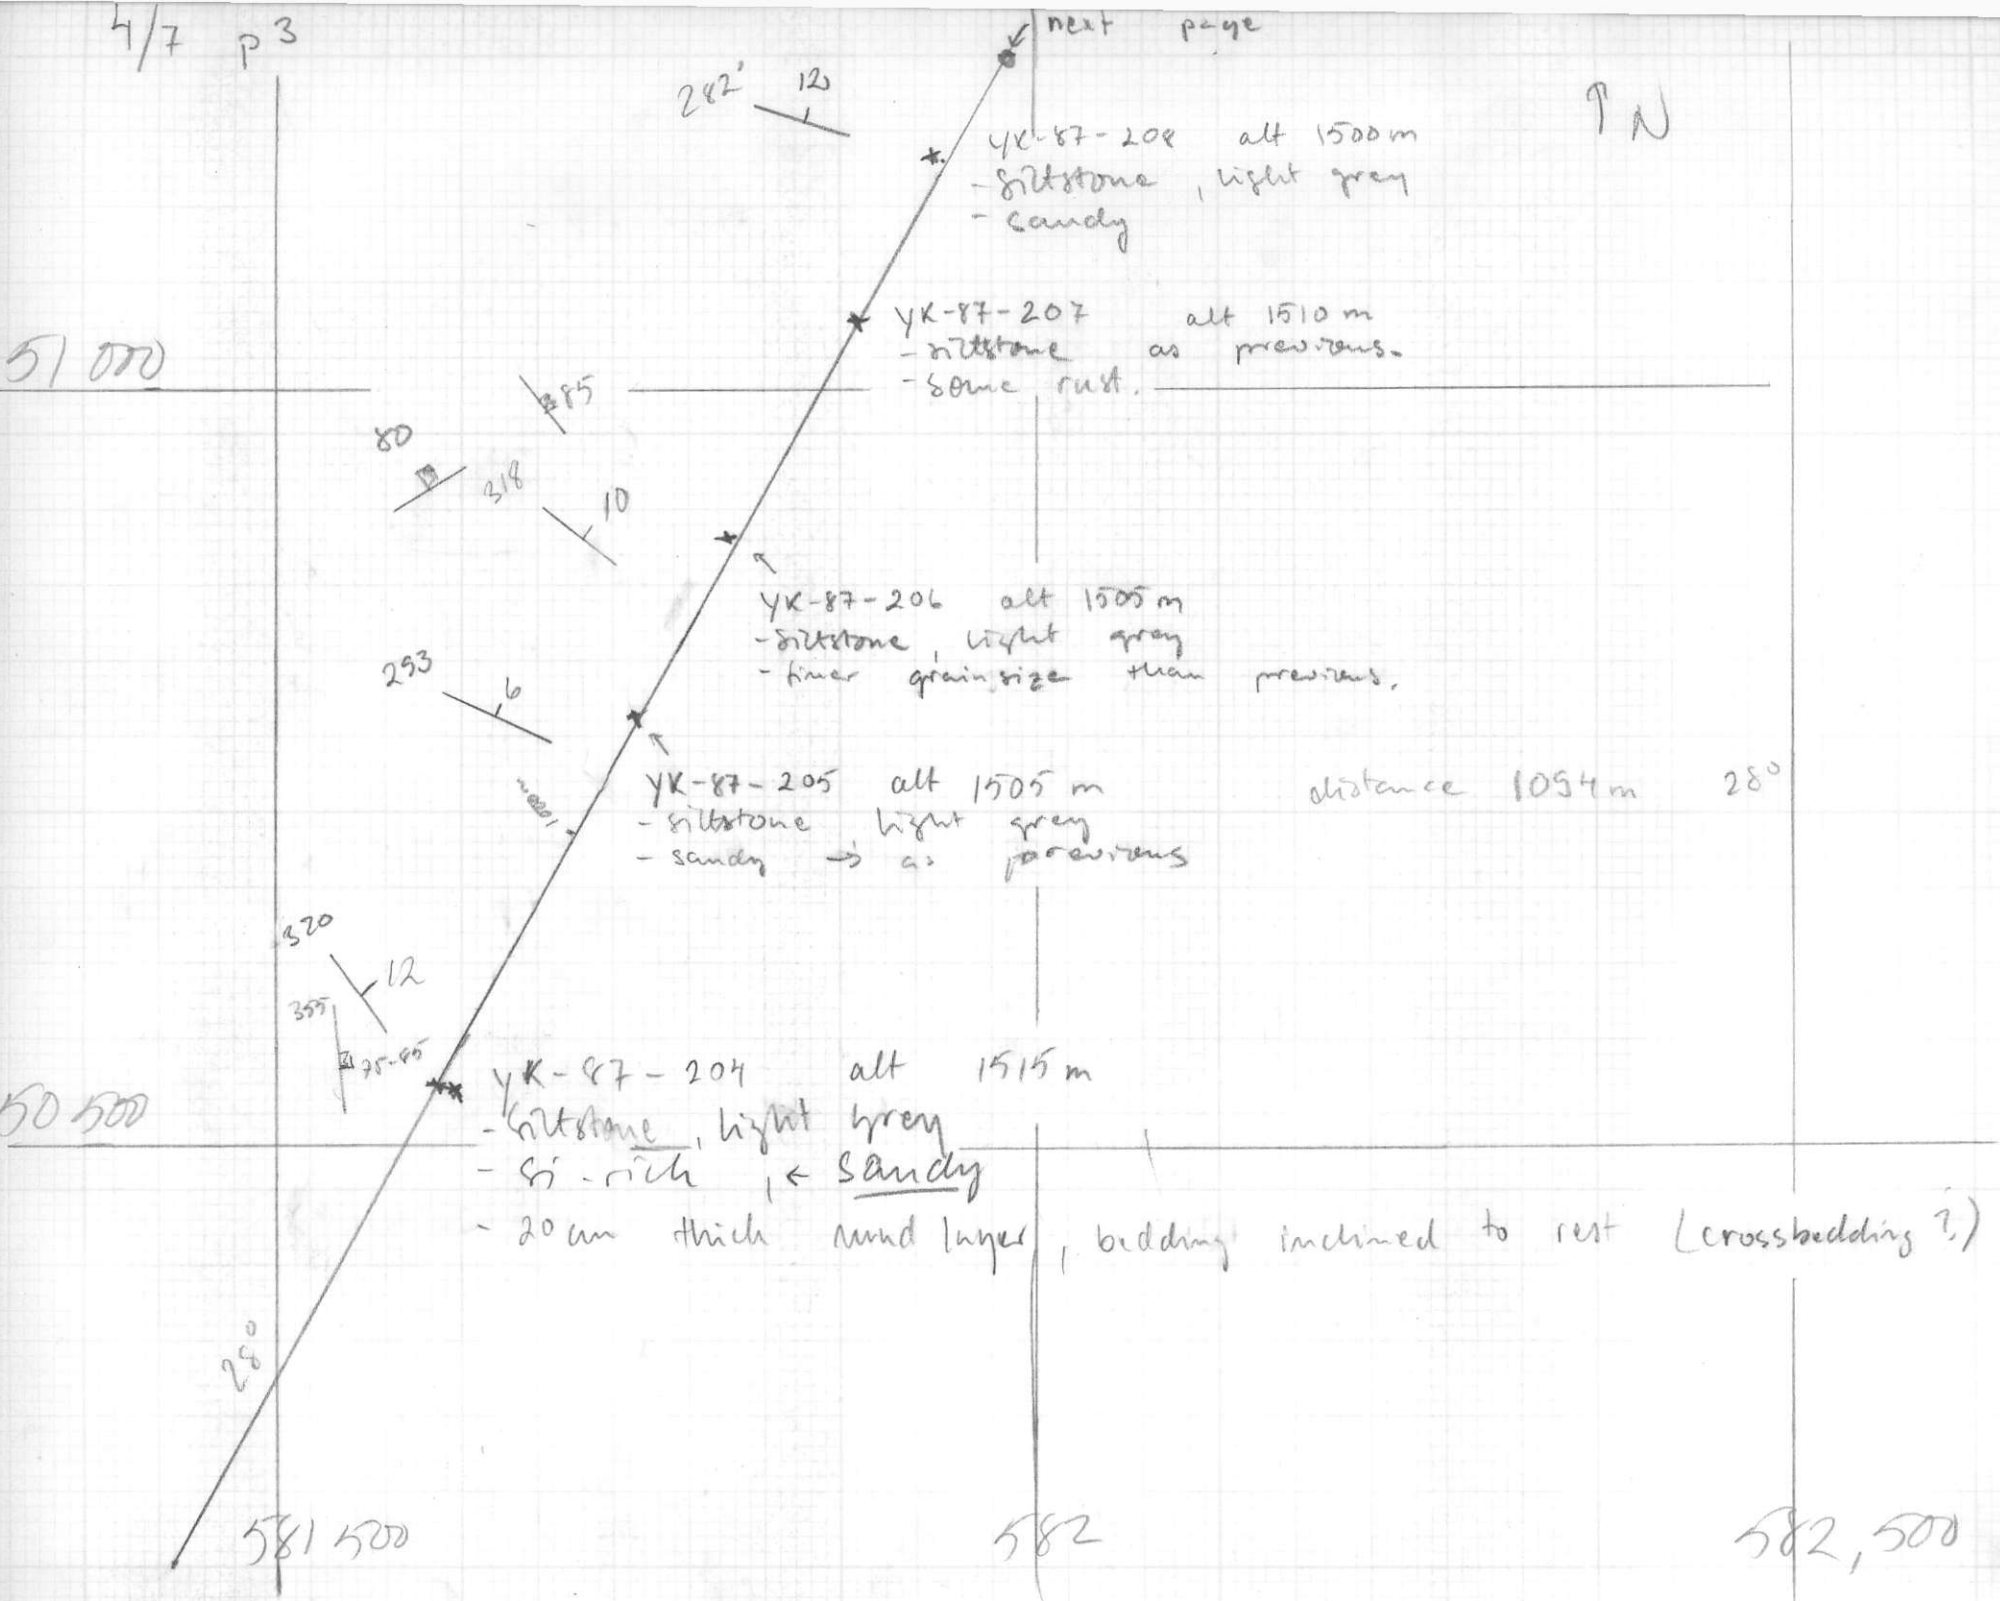 4/7 p 3
next page
282 12
↑ N
YK-87-208 alt 1500 m
- siltstone, light grey
- sandy
YK-87-207 alt 1510 m
- siltstone as previous.
- some rust.
51 000
85
80
318 10
YK-87-206 alt 1505 m
- siltstone, light grey
- finer grainsize than previous.
293 6
YK-87-205 alt 1505 m
- siltstone light grey
- sandy → as previous
distance 1094 m 28°
320 12
355 75-85
YK-87-204 alt 1515 m
- Siltstone, light grey
- Si-rich, ← sandy
- 20 cm thick mud layer, bedding inclined to rest (crossbedding?)
50 500
28°
581 500
582
582,500